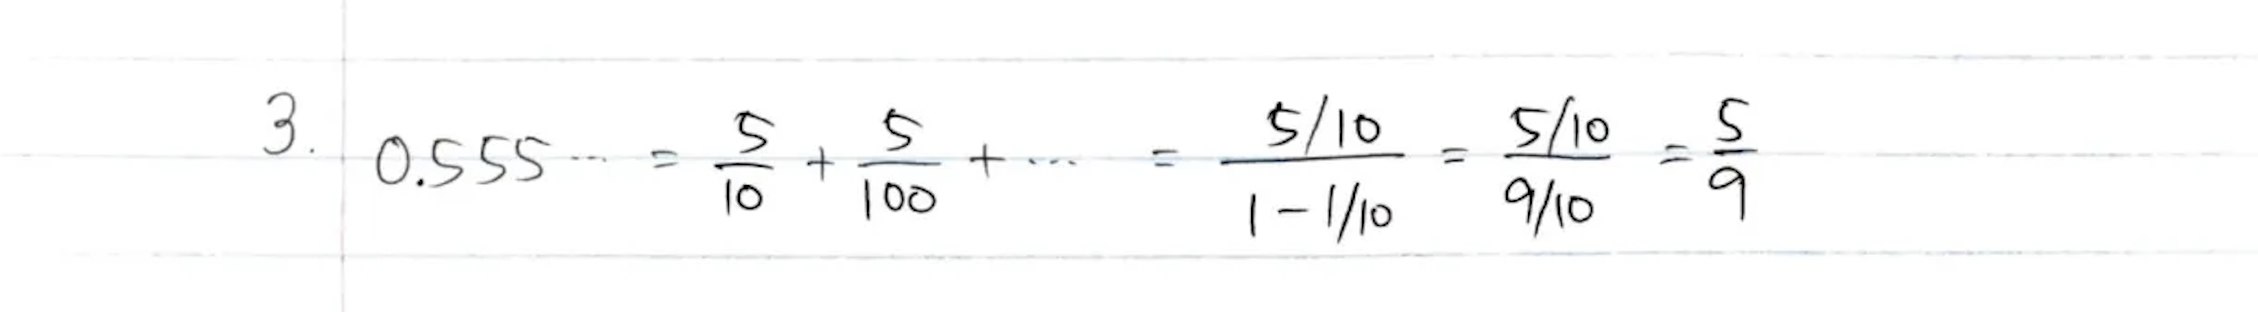 3. 0.555... = 5/10 + 5/100 + ... = (5/10)/(1-1/10) = (5/10)/(9/10) = 5/9